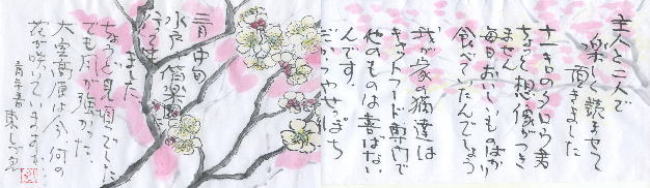 主人と二人で
楽しく読ませて
頂きました
十一キロのタロウ君
ちょっと想像がつき
ません
毎日おいしいものばかり
食べていたんでしょう
我が家の猫達は
キャットフード専門で
他のものは喜ばない
んです。
だからやせっぽち
三月中旬
水戸偕楽園
行って
きました
ちょうど見頃でした
でも風が強かった
大室高原は今、何の
花が咲いていますか